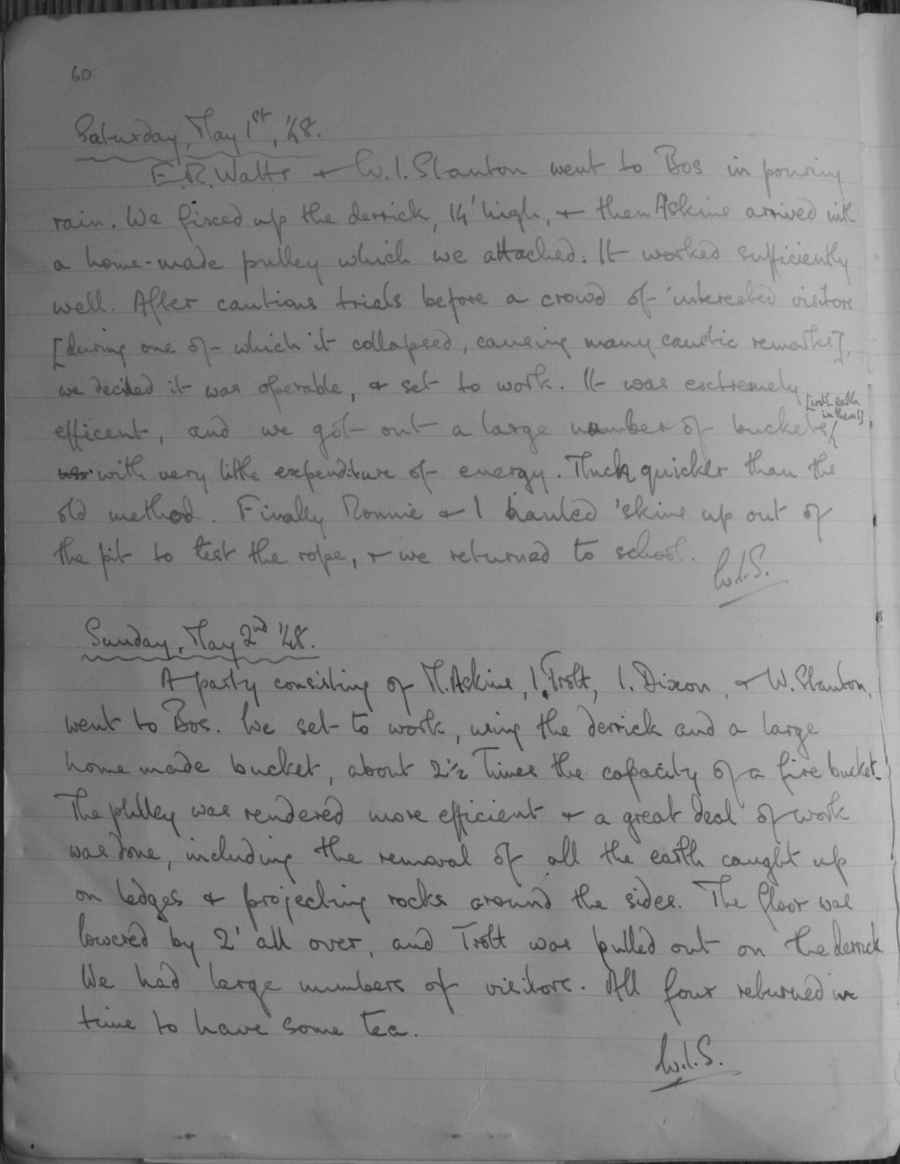 60.
Saturday, May 1st, '48.
E.R. Watts + W.I. Stanton went to Bos in pouring
rain. We fixed up the derrick, 14' high, + then Adkins arrived with
a home-made pulley which we attached. It worked sufficiently
well. After cautious trials before a crowd of interested visitors
[during one of which it collapsed, causing many caustic remarks],
we decided it was operable, + set to work. It was extremely
[with earth
in them]
efficent, and we got out a large number of buckets
with very little expenditure of energy. Much quicker than the
old method. Finally Ronnie + I hauled 'skins up out of
the pit to test the rope, + we returned to school.
W.I.S.
Sunday, May 2nd '48.
A party consisting of M. Adkins, I. Trott, I. Dixon, + W. Stanton,
went to Bos. We set to work, using the derrick and a large
home made bucket, about 2½ times the capacity of a fire bucket.
The pulley was rendered more efficient + a great deal of work
was done, including the removal of all the earth caught up
on ledges + projecting rocks around the sides. The floor was
lowered by 2' all over, and Trott was pulled out on the derrick
We had large numbers of visitors. All four returned in
time to have some tea.
W.I.S.